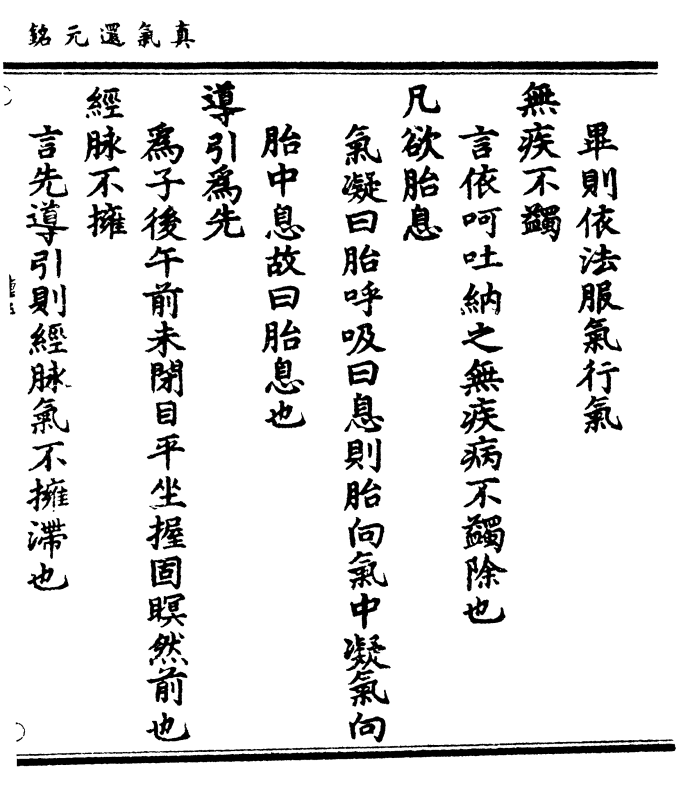 真氣還元銘
畢則依法服氣行氣
無疾不蠲
言依呵吐納之無疾病不蠲除也
凡欲胎息
氣凝曰胎呼吸曰息則胎向氣中凝氣向
胎中息故曰胎息也
導引爲先
爲子後午前未閉目平坐握固瞑然前也
經脉不擁
言先導引則經脉氣不擁滯也